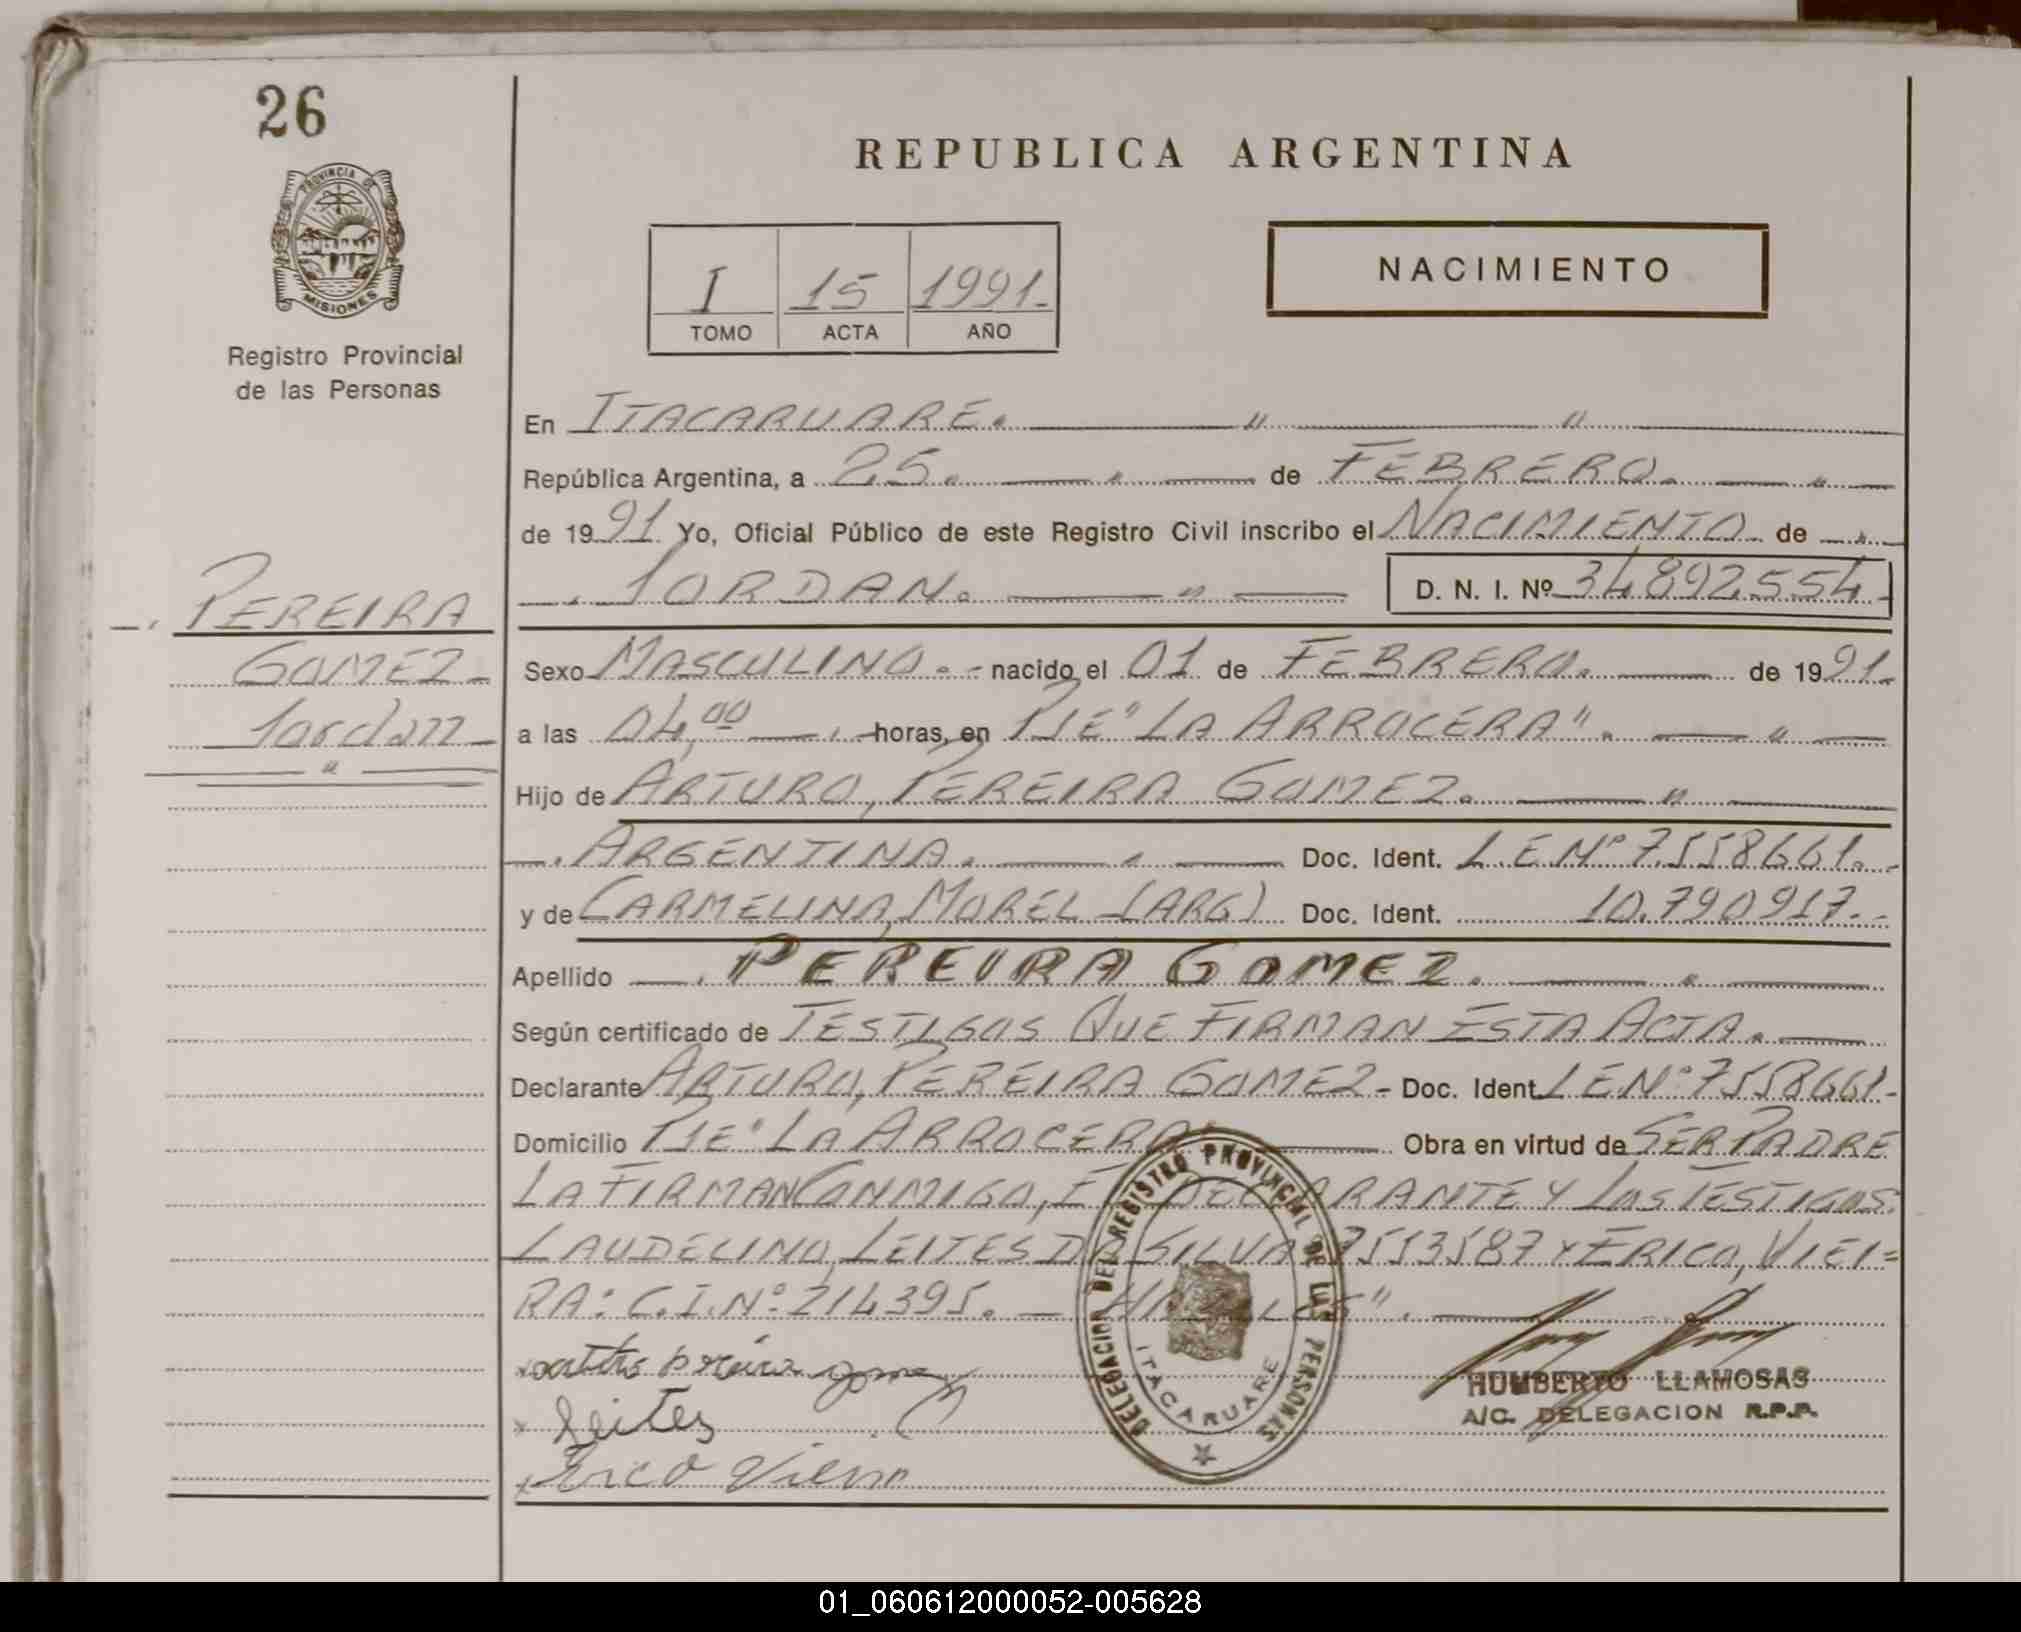 26
REPUBLICA ARGENTINA
PROVINCIA DE
MISIONES
Registro Provincial
de las Personas
I 15 1991.
TOMO ACTA AÑO
NACIMIENTO
En ITACARUARE.
República Argentina, a 25. de FEBRERO.
de 1991 Yo, Oficial Público de este Registro Civil inscribo el NACIMIENTO de
JORDAN. D. N. I. Nº 34892554
PEREIRA
GOMEZ
Jordan
Sexo MASCULINO. - nacido el 01 de FEBRERO. de 1991.
a las 04,00 horas, en PJE "LA ARROCERA".
Hijo de ARTURO, PEREIRA GOMEZ.
ARGENTINA. Doc. Ident. L.E.Nº 7558661.
y de CARMELINA, MOREL (ARG) Doc. Ident. 10.790917.
Apellido PEREIRA GOMEZ.
Según certificado de TESTIGOS QUE FIRMAN ESTA ACTA.
Declarante ARTURO, PEREIRA GOMEZ - Doc. Ident. L.E.Nº 7558661-
Domicilio PJE "LA ARROCERA" Obra en virtud de SER PADRE
LA FIRMAN CONMIGO, EL DECLARANTE Y LOS TESTIGOS:
LAUDELINO, LEITES DA SILVA 7513587 Y ERICO, VIEI=
RA: C.I.Nº: 214395.
DELEGACION DEL REGISTRO PROVINCIAL DE LAS PERSONAS
ITACARUARE
pereira gomez
Leites
Erico Vieira
HUMBERTO LLAMOSAS
A/C. DELEGACION R.P.P.
01_060612000052-005628